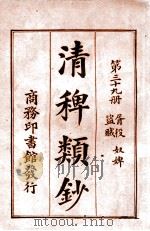 第三十九册
胥役 奴婢
盗賊
清稗類鈔
商務印書館發行